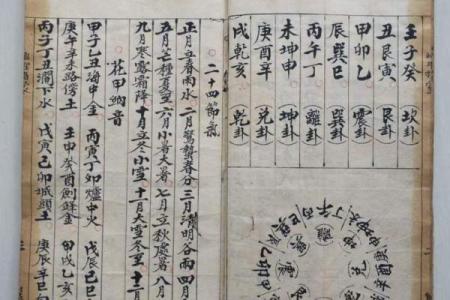 壬子癸 坎卦
丑艮寅 艮卦
甲卯乙 震卦
辰巽巳 巽卦
丙午丁 離卦
未坤申 坤卦
庚酉辛 兌卦
戌乾亥 乾卦
丁午丙
兌
二十四節氣
正月立春雨水 二月驚蟄春分 三月清明谷雨 四月
五月芒種夏至 六月小暑大暑 七月立秋處暑 八月
九月寒露霜降 十月立冬小雪 十一月大雪冬至 十二
花甲納音
甲子乙丑海中金 丙寅丁卯爐中火 戊辰己巳
庚午辛未路傍土 壬申癸酉劍鋒金 甲戌乙亥
丙子丁丑澗下水 戊寅己卯城頭土 庚辰辛巳